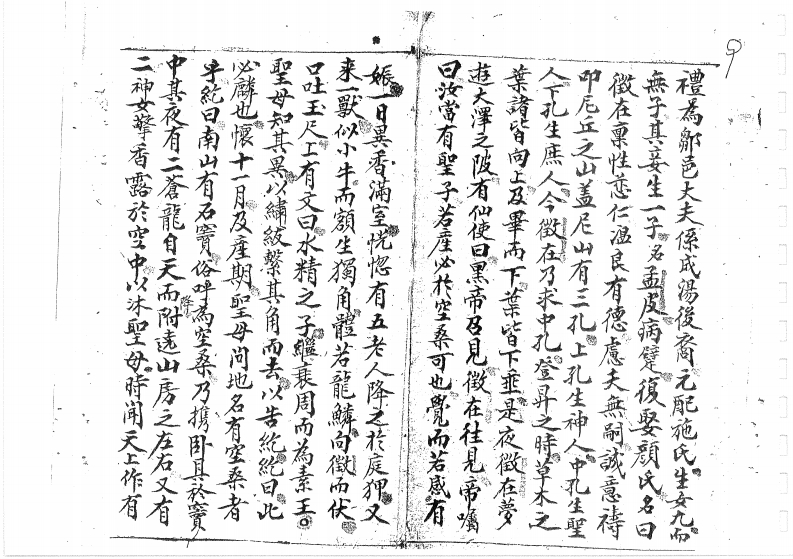 禮為鄒邑大夫係成湯後裔元配施氏生女九而
無子其妾生一子名孟皮病躄復娶顏氏名曰
徵在稟性慈仁溫良有德慮夫無嗣誠意禱
叩尼丘之山盖尼山有三孔上孔生神人中孔生聖
人下孔生庶人今徵在乃求中孔登昇之時草木之
葉諸皆向上及畢而下葉皆下垂是夜徵在夢
遊大澤之陂有仙使曰黑帝召見徵在往見帝囑
曰汝當有聖子若産必於空桑可也覺而若感有
娠一日異香滿室恍惚有五老人降之於庭狎又
來一獸似小牛而額生獨角體若龍鱗向徵而伏
口吐玉尺上有文曰水精之子繼衰周而為素王
聖母知其異以繡紱繫其角而去以告紇紇曰此
必麟也懷十一月及産期聖母问地名有空桑者
乎紇曰南山有石竇俗呼為空桑乃携卧其於竇
中其夜有二蒼龍自天而降附遶山房之左右又有
二神女擎香露於空中以沐聖母時闻天上作有